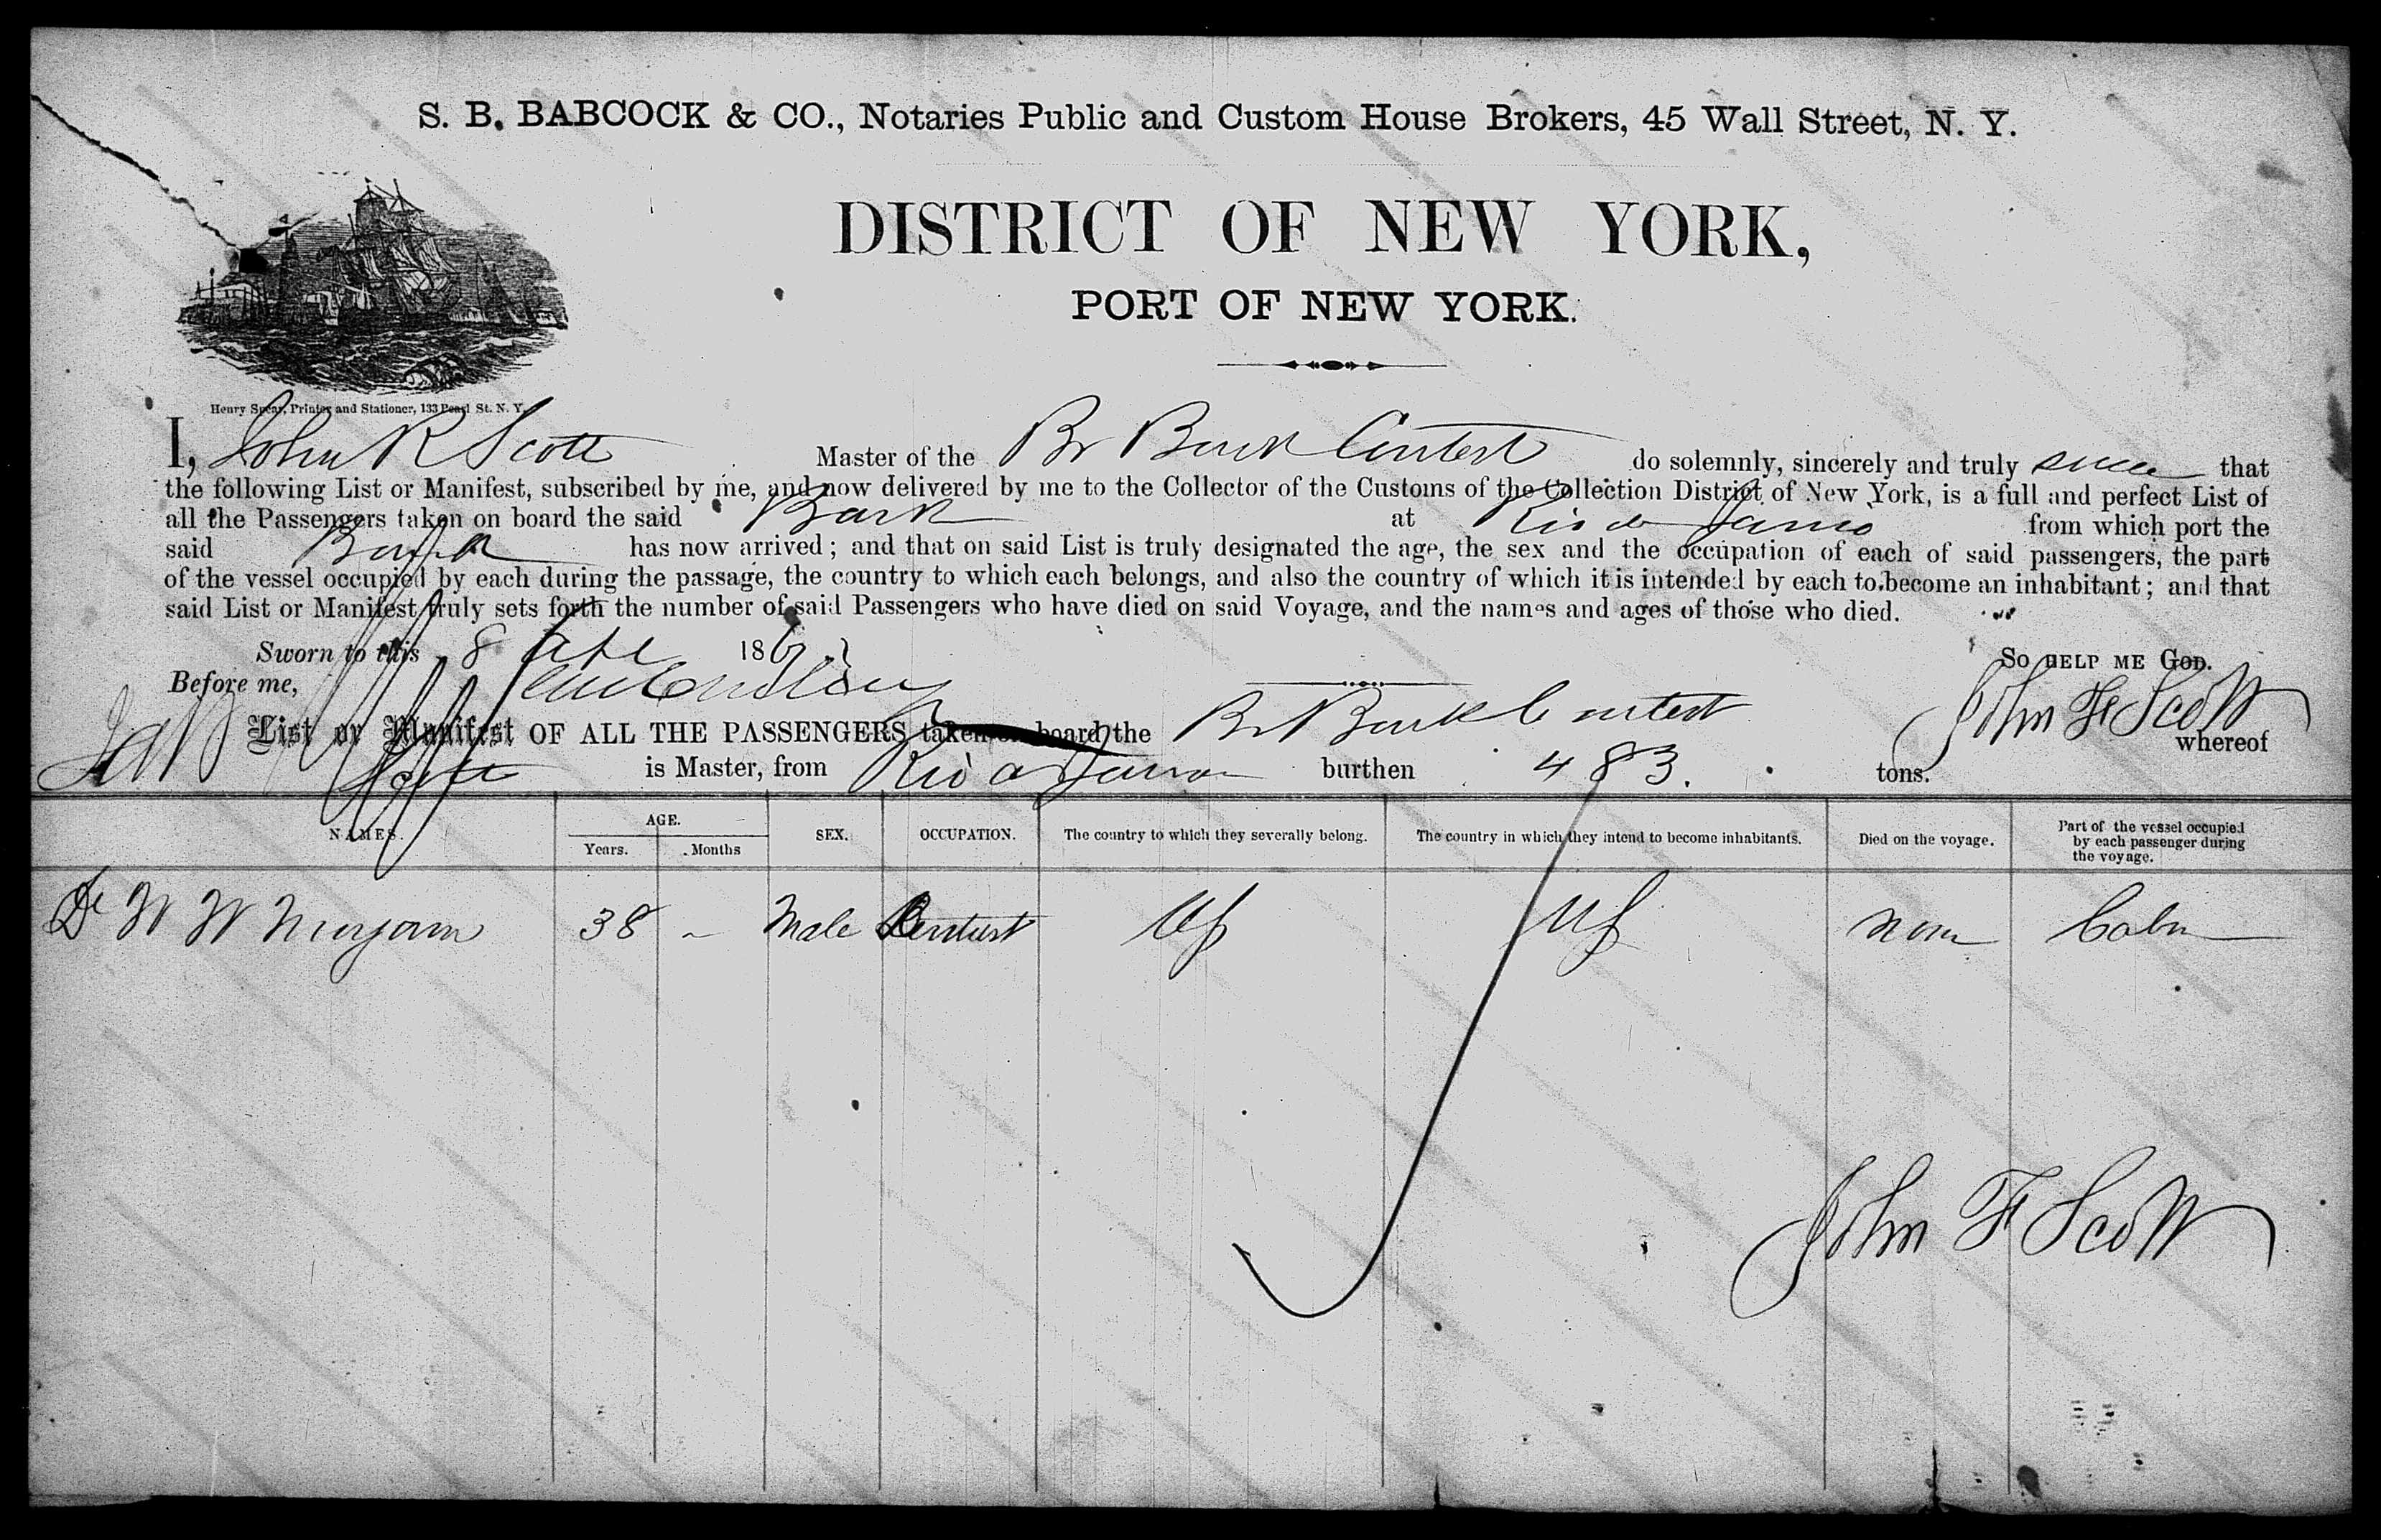 S. B. BABCOCK & CO., Notaries Public and Custom House Brokers, 45 Wall Street, N. Y.
DISTRICT OF NEW YORK,
PORT OF NEW YORK.
Henry Spear, Printer and Stationer, 133 Pearl St. N. Y.
I, John R Scott Master of the Br Bark Contest do solemnly, sincerely and truly that
the following List or Manifest, subscribed by me, and now delivered by me to the Collector of the Customs of the Collection District of New York, is a full and perfect List of
all the Passengers taken on board the said Bark at Rio de from which port the
said Bark has now arrived; and that on said List is truly designated the age, the sex and the occupation of each of said passengers, the part
of the vessel occupied by each during the passage, the country to which each belongs, and also the country of which it is intended by each to become an inhabitant; and that
said List or Manifest truly sets forth the number of said Passengers who have died on said Voyage, and the names and ages of those who died.
Sworn to this 8 186 SO HELP ME GOD.
Before me, John F Scott
List or Manifest OF ALL THE PASSENGERS taken on board the Br Bark Contest whereof
Scott is Master, from Rio burthen 483. tons.
NAMES. AGE. Years. Months SEX. OCCUPATION. The country to which they severally belong. The country in which they intend to become inhabitants. Died on the voyage. Part of the vessel occupied by each passenger during the voyage.
Dr W W 38 - Male Dentist US US none Cabin
John F Scott